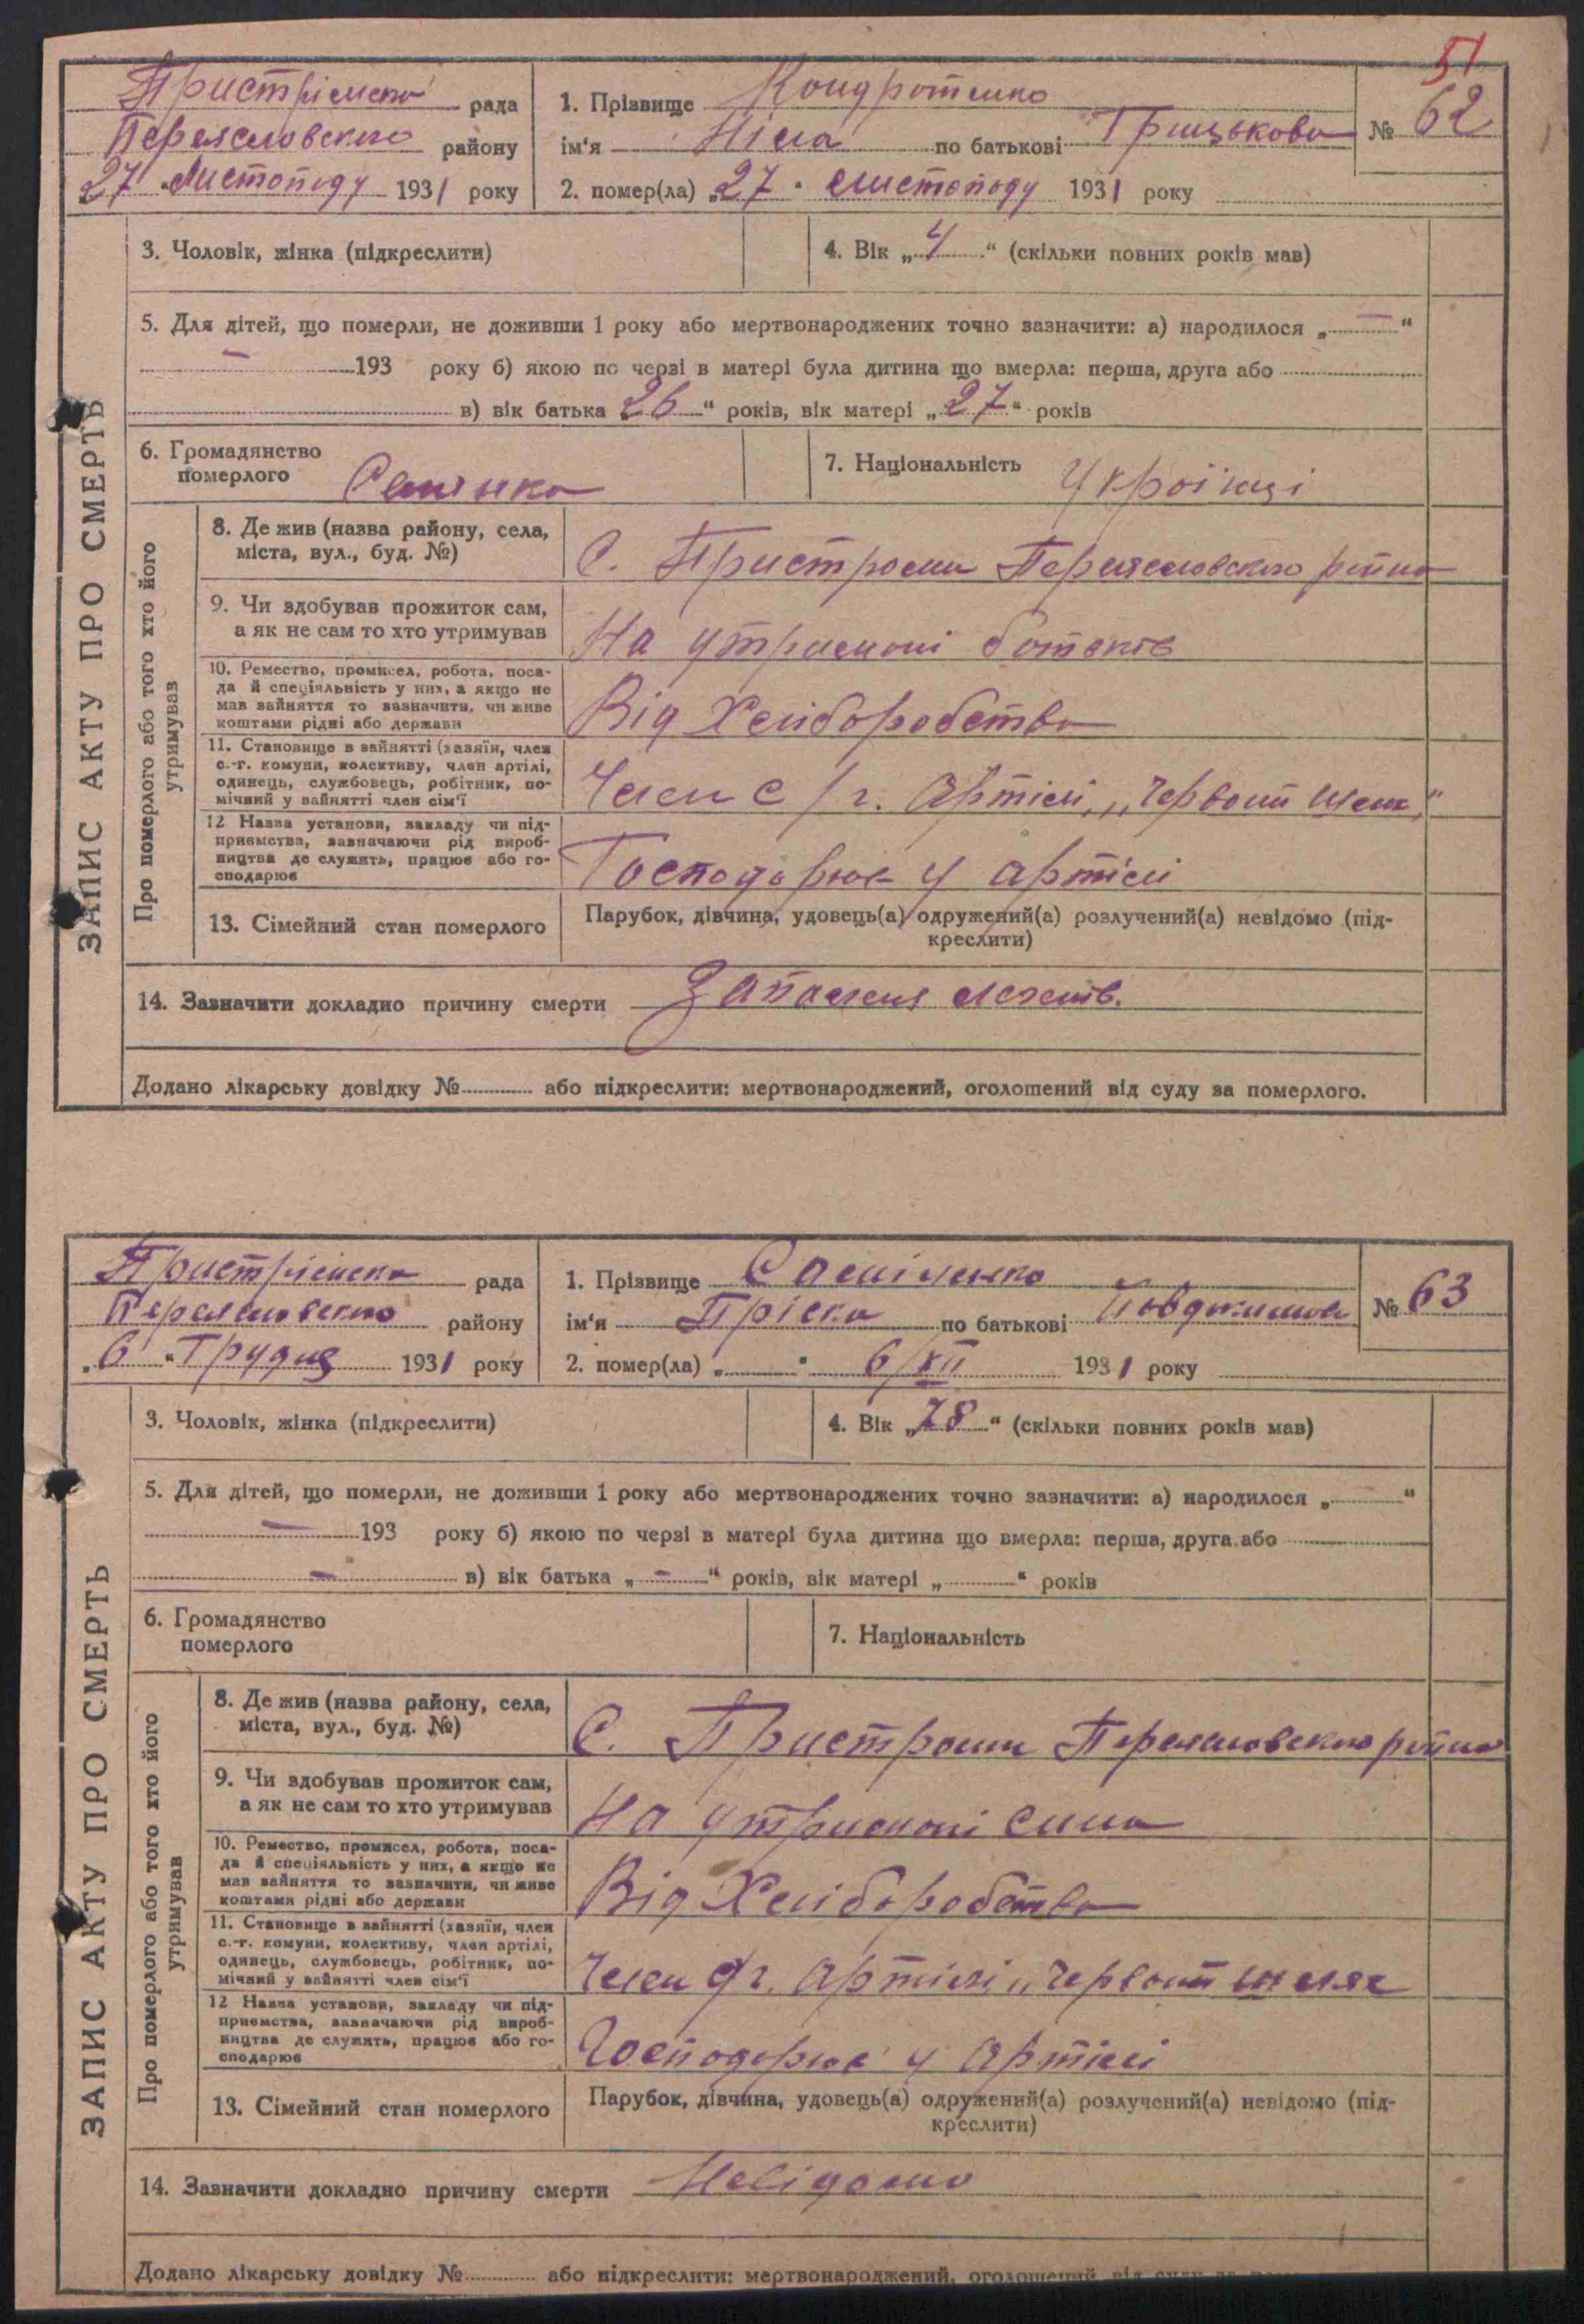 51
Пристрiмська рада
Переяславського району
27 „Листопаду 1931 року
1. Прізвище Кондратенко
ім'я Ніна по батькові Грицькова
№ 62
2. помер(ла) „27" листопаду 1931 року
3. Чоловік, жінка (підкреслити)
4. Вік „4" (скільки повних років мав)
5. Для дітей, що померли, не доживши 1 року або мертвонароджених точно зазначити: а) народилося „—"
— 193 року б) якою по черзі в матері була дитина що вмерла: перша, друга або
в) вік батька 26" років, вік матері „27" років
6. Громадянство
померлого Селянка
7. Національність Україньці
8. Де жив (назва району, села,
міста, вул., буд. №)
С. Пристроми Переясловського району
9. Чи здобував прожиток сам,
а як не сам то хто утримував
На утриманні батьків
10. Ремество, промисел, робота, поса-
да й спеціяльність у них, а якщо не
мав зайняття то зазначити, чи живе
коштами рідні або держави
Від Хліборобства
11. Становище в зайнятті (хазяїн, член
с.-г. комуни, колективу, член артілі,
одинець, службовець, робітник, по-
мічний у зайнятті член сім'ї
Член с/г. Артілі „Червоний Шлях"
12 Назва установи, закладу чи під-
приємства, зазначаючи рід вироб-
ництва де служить, працює або го-
сподарює
Господарює у артілі
13. Сімейний стан померлого
Парубок, дівчина, удовець(а) одружений(а) розлучений(а) невідомо (під-
креслити)
14. Зазначити докладно причину смерти Запаленя легенів.
Додано лікарську довідку № або підкреслити: мертвонароджений, оголошений від суду за померлого.
ЗАПИС АКТУ ПРО СМЕРТЬ
Про померлого або того хто його
утримував
Пристрiмська рада
Переяславського району
„6" Грудня 1931 року
1. Прізвище
ім'я Пріська по батькові
№ 63
2. помер(ла) „ " 6/XII 1931 року
3. Чоловік, жінка (підкреслити)
4. Вік „78" (скільки повних років мав)
5. Для дітей, що померли, не доживши 1 року або мертвонароджених точно зазначити: а) народилося „ "
— 193 року б) якою по черзі в матері була дитина що вмерла: перша, друга або
— в) вік батька „—" років, вік матері „ " років
6. Громадянство
померлого
7. Національність
8. Де жив (назва району, села,
міста, вул., буд. №)
С. Пристроми Переяславського району
9. Чи здобував прожиток сам,
а як не сам то хто утримував
На утриманні сина
10. Ремество, промисел, робота, поса-
да й спеціяльність у них, а якщо не
мав зайняття то зазначити, чи живе
коштами рідні або держави
Від Хліборобства
11. Становище в зайнятті (хазяїн, член
с.-г. комуни, колективу, член артілі,
одинець, службовець, робітник, по-
мічний у зайнятті член сім'ї
Член с/г. Артілі „Червоний шлях
12 Назва установи, закладу чи під-
приємства, зазначаючи рід вироб-
ництва де служить, працює або го-
сподарює
Господарює у Артілі
13. Сімейний стан померлого
Парубок, дівчина, удовець(а) одружений(а) розлучений(а) невідомо (під-
креслити)
14. Зазначити докладно причину смерти Невідомо
Додано лікарську довідку № або підкреслити: мертвонароджений, оголошений від суду за
ЗАПИС АКТУ ПРО СМЕРТЬ
Про померлого або того хто його
утримував